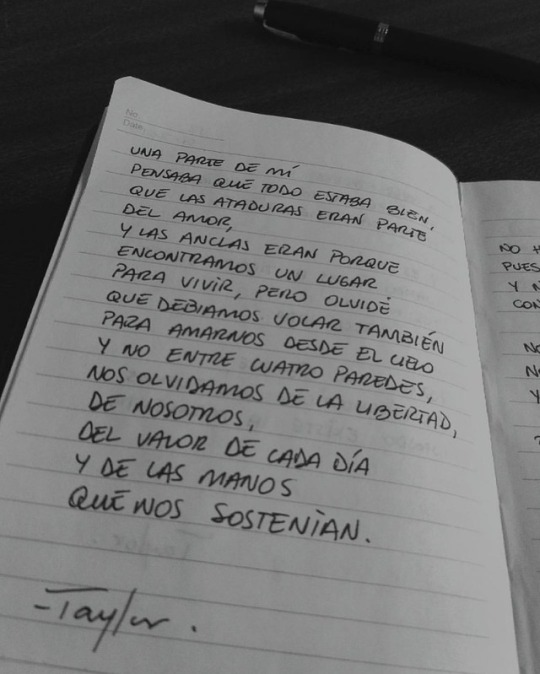 No.
Date.
UNA PARTE DE MÍ
PENSABA QUE TODO ESTABA BIEN,
QUE LAS ATADURAS ERAN PARTE
DEL AMOR,
Y LAS ANCLAS ERAN PORQUE
ENCONTRAMOS UN LUGAR
PARA VIVIR, PERO OLVIDÉ
QUE DEBIAMOS VOLAR TAMBIÉN
PARA AMARNOS DESDE EL CIELO
Y NO ENTRE CUATRO PAREDES,
NOS OLVIDAMOS DE LA LIBERTAD,
DE NOSOTROS,
DEL VALOR DE CADA DÍA
Y DE LAS MANOS
QUE NOS SOSTENÍAN.
-Taylor.
NO
PUES
Y
CON
Y